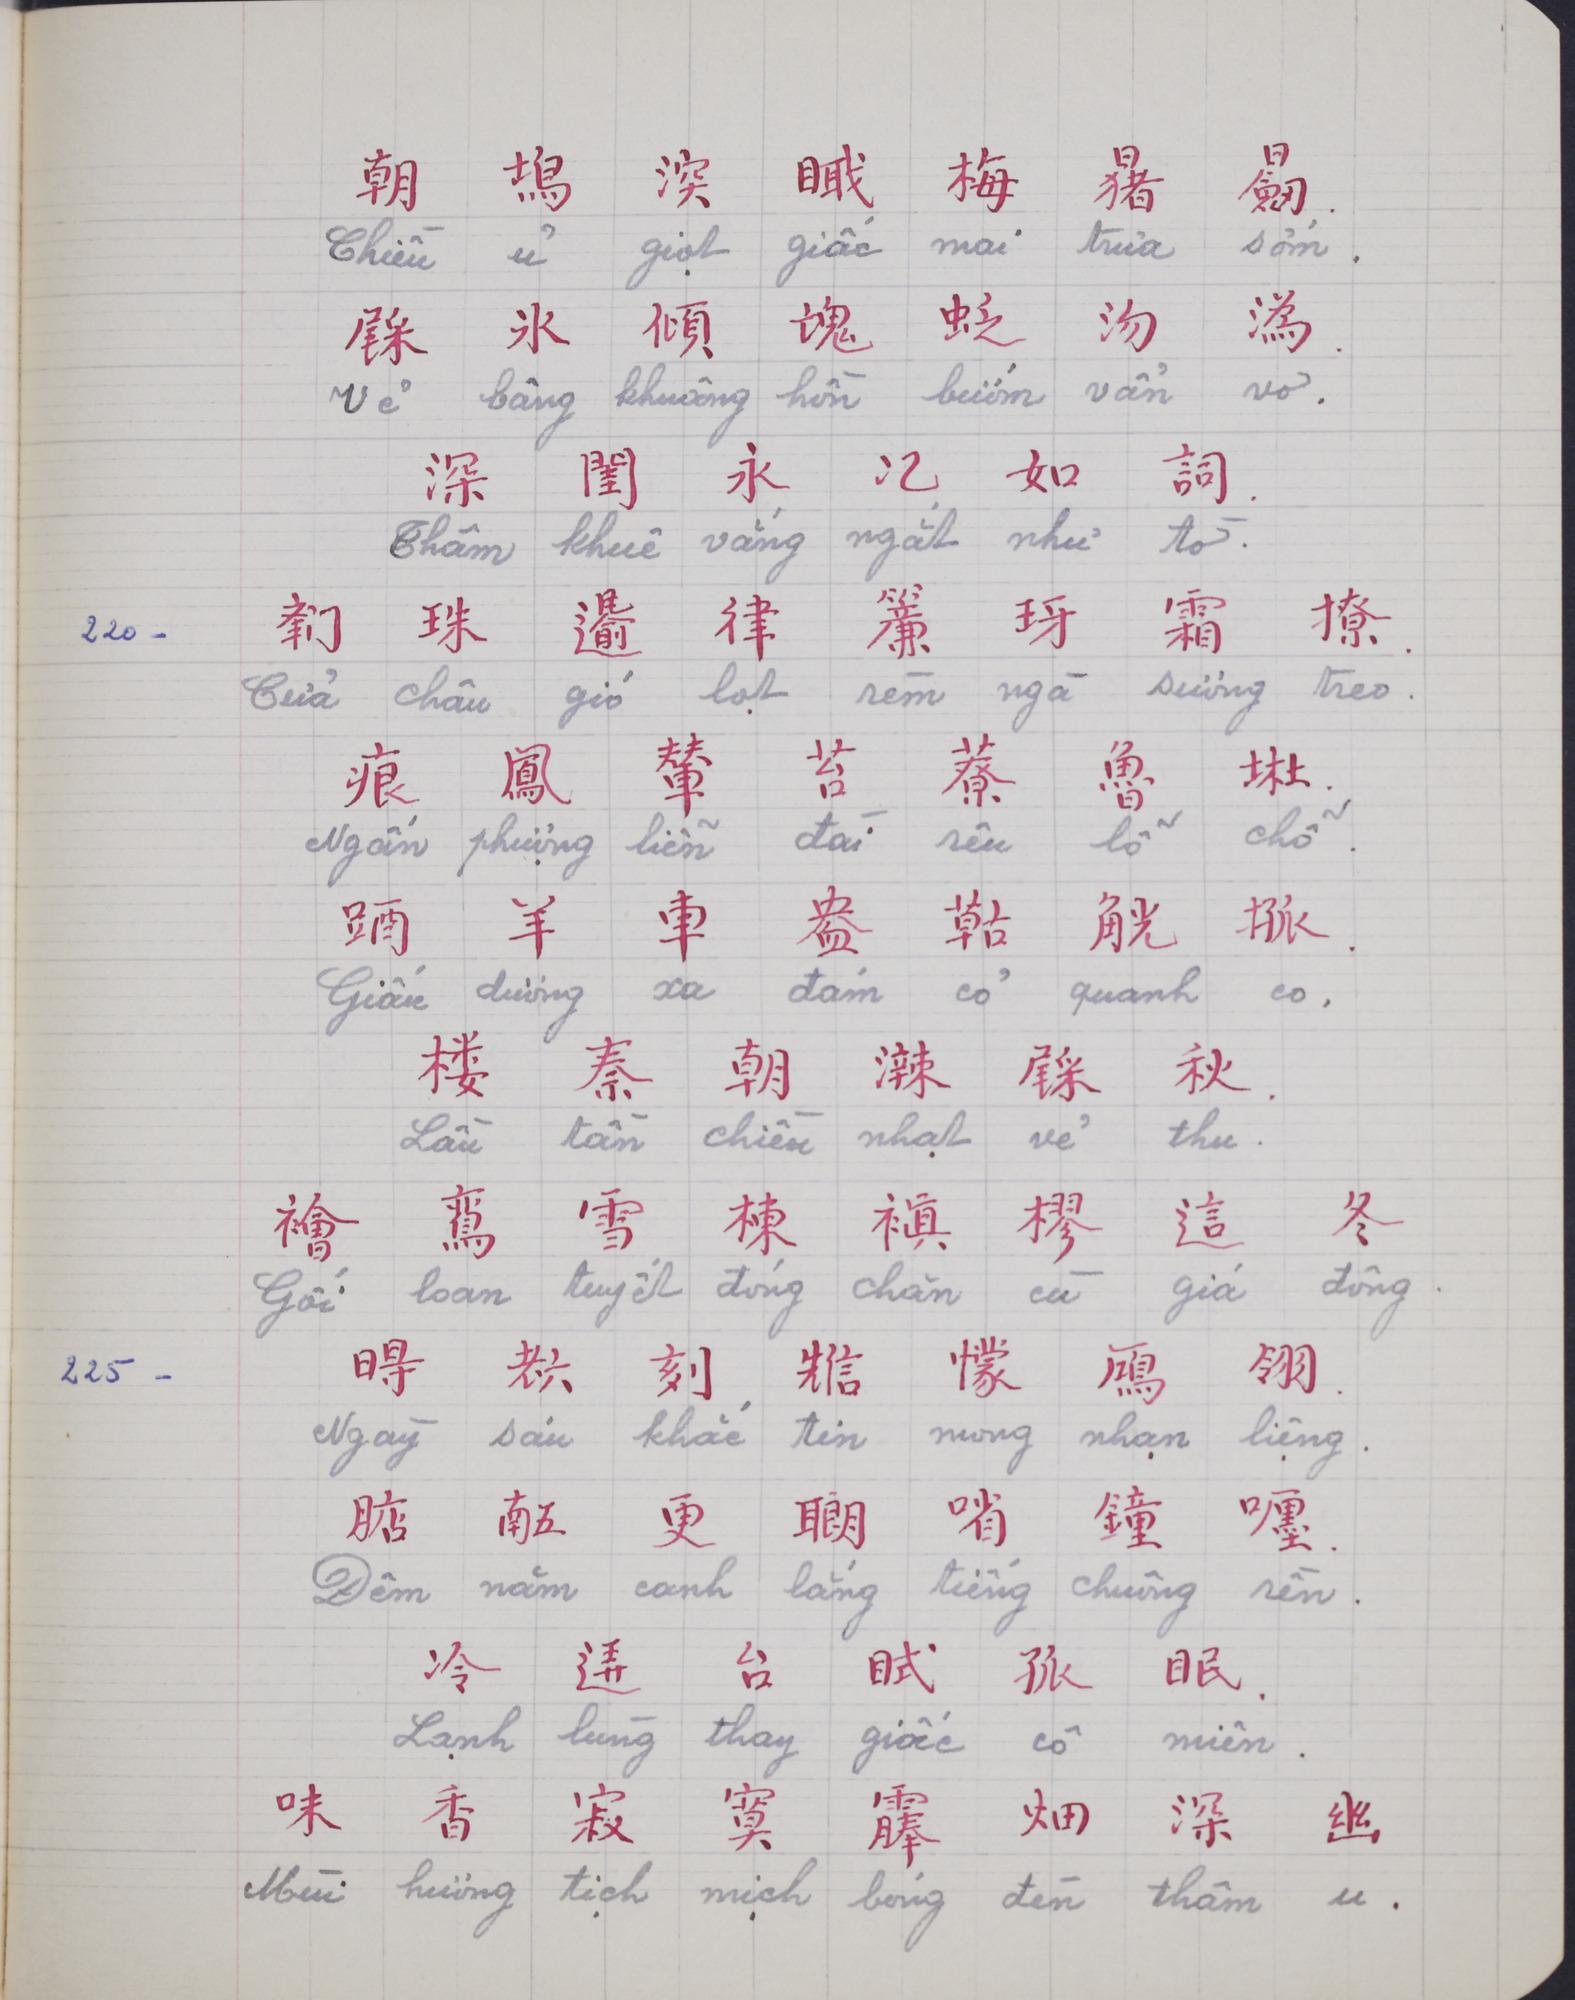 朝 塢 湥 𥆾 梅 𣋂 𣌋.
Chiều ủ giọt giấc mai trưa sớm.
𨤔 氷 傾 魂 𧊉 沕 溈.
Vẻ bâng khuâng hồn bướm vẩn vơ.
深 閨 永 𠖯 如 詞.
Thâm khuê vắng ngắt như tờ.
220 - 𨷯 珠 𨗺 律 簾 玡 霜 撩.
Cửa châu gió lọt rèm ngà sương treo.
痕 鳳 輦 苔 藔 魯 𡊲.
Ngấn phượng liễn đãi rêu lỗ chỗ.
𨁪 羊 車 盎 𦹵 觥 㧓.
Giấu dương xa đám cỏ quanh co.
楼 秦 朝 溂 𨤔 秋.
Lầu tần chiều nhạt vẻ thu.
襘 鸞 雪 棟 禛 樛 這 冬
Gối loan tuyết đóng chăn cù giá đông.
225 - 𣈗 𦒹 刻 𠶣 懞 鴈 翎.
Ngày sáu khắc tin mong nhạn liệng.
𣎀 𠄼 更 𦗏 㗂 鐘 𠻞.
Đêm năm canh lắng tiếng chuông rền.
冷 𨓡 台 𥅞 孤 眠.
Lạnh lùng thay giấc cô miên.
味 香 寂 寞 䏾 畑 深 幽
Mùi hương tịch mịch bóng đèn thâm u.